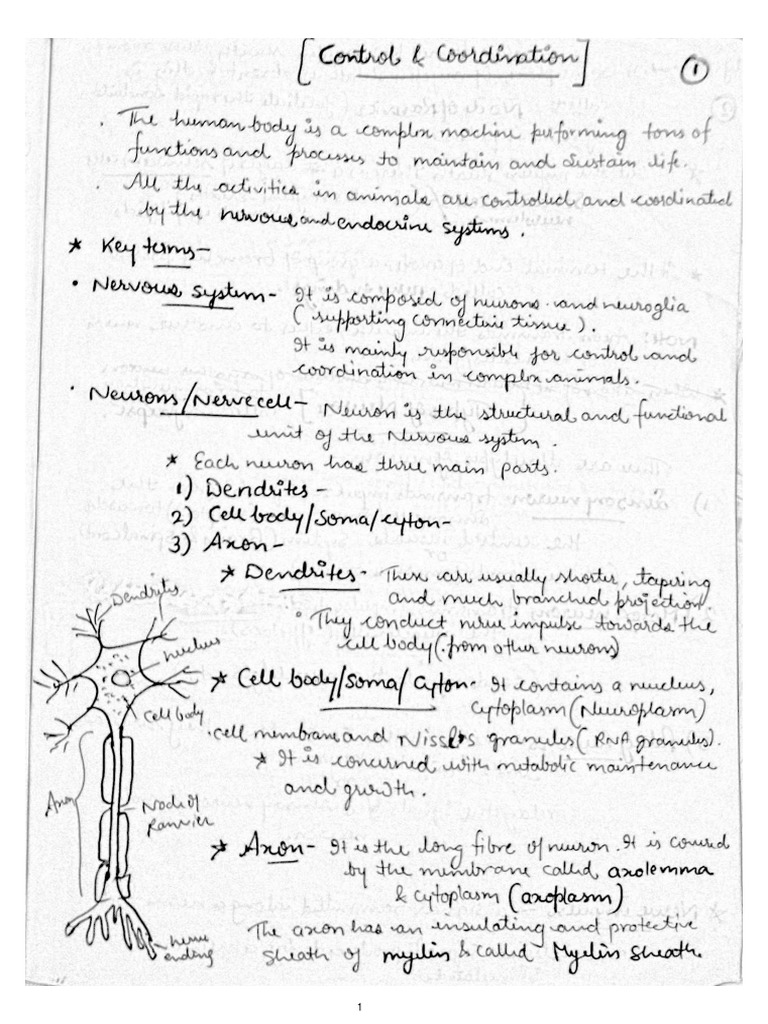 [Control & Coordination]
1
. The human body is a complex machine performing tons of
functions and processes to maintain and sustain life.
. All the activities in animals are controlled and coordinated
by the nervous and endocrine systems.
* Key terms-
• Nervous system- It is composed of neurons and neuroglia
(supporting connective tissue).
It is mainly responsible for control and
coordination in complex animals.
• Neurons/Nerve cell- Neuron is the structural and functional
unit of the Nervous system.
* Each neuron has three main parts.
1) Dendrites-
2) Cell body/Soma/cyton-
3) Axon-
* Dendrites- These are usually shorter, tapiring
and much branched projection
° They conduct nerve impulse towards the
cell body (from other neurons)
* Cell body/Soma/Cyton- It contains a nucleus,
cytoplasm (Neuroplasm)
.cell membrane and Nissl's granules (RNA granules).
* It is concerned with metabolic maintenance
and growth.
* Axon- It is the long fibre of neuron. It is covered
by the membrane called axolemma
& cytoplasm (axoplasm)
The axon has an insulating and protective
sheath of myelin & called Myelin Sheath.
Dendrites
nucleus
Cell body
Axon
Node of
Ranvier
nerve
ending
1